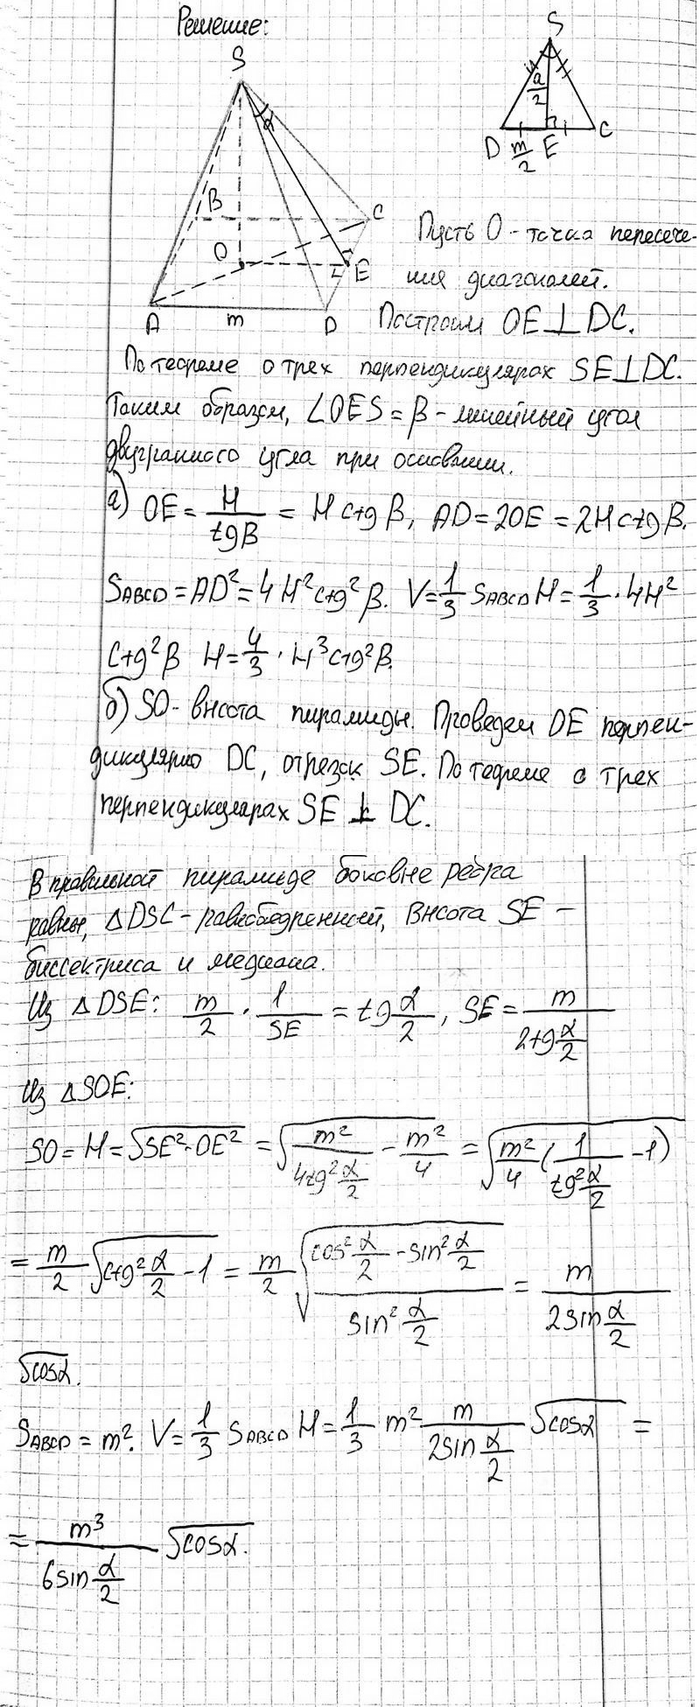 Решение:
S
α
B
C
O
E
A
m
D
S
α/2
D m/2 E C
Пусть O - точка пересече-
ния диагоналей.
Построим OE⊥DC.
По теореме о трех перпендикулярах SE⊥DC.
Таким образом, ∠OES = β - линейный угол
двугранного угла при основании.
а) OE = H/tgβ = H ctgβ, AD = 2OE = 2H ctgβ.
S_ABCD = AD² = 4H²ctg²β. V = 1/3 S_ABCD H = 1/3 · 4H²
ctg²β H = 4/3 · H³ctg²β.
б) SO - высота пирамиды. Проведем OE перпен-
дикулярно DC, отрезок SE. По теореме о трех
перпендикулярах SE ⊥ DC.
В правильной пирамиде боковые ребра
равны, ΔDSC - равнобедренный, высота SE -
биссектриса и медиана.
Из ΔDSE: m/2 · 1/SE = tg α/2, SE = m/(2tg α/2)
Из ΔSOE:
SO = H = √(SE² - OE²) = √(m²/(4tg² α/2) - m²/4) = √(m²/4 (1/(tg² α/2) - 1))
= m/2 √(ctg² α/2 - 1) = m/2 √((cos² α/2 - sin² α/2)/(sin² α/2)) = m/(2sin α/2)
√cosα.
S_ABCD = m². V = 1/3 S_ABCD H = 1/3 m² m/(2sin α/2) √cosα =
= m³/(6sin α/2) √cosα.